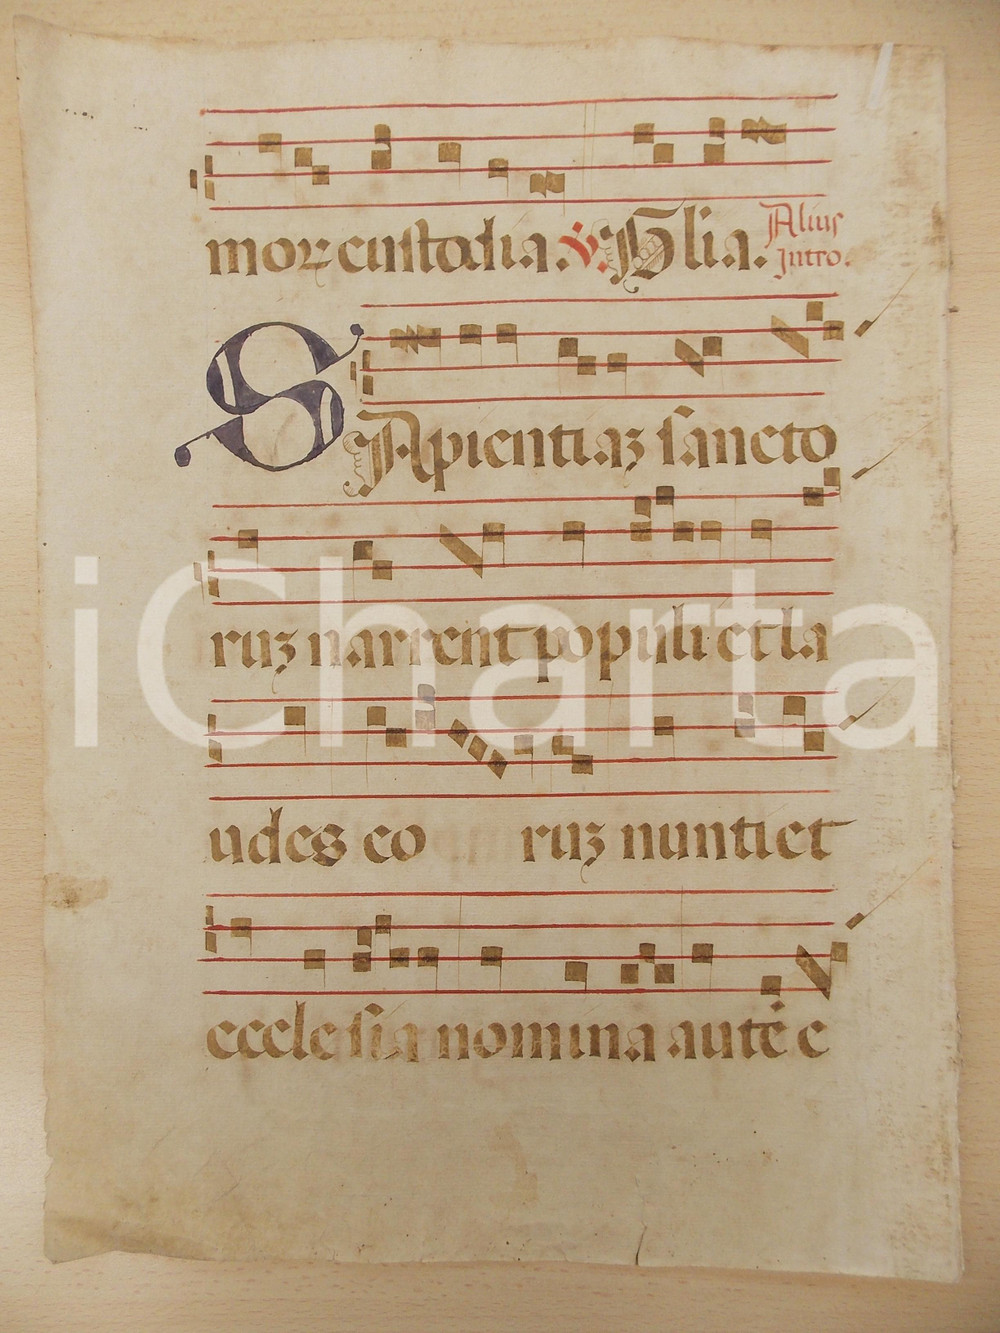 mor custodia. ℣. Glia. Alius
Intro.
SApientiaʒ sancto
ruʒ narrent populi et la
udes eo ruʒ nuntiet
ecclesia nomina autē e
iCharta